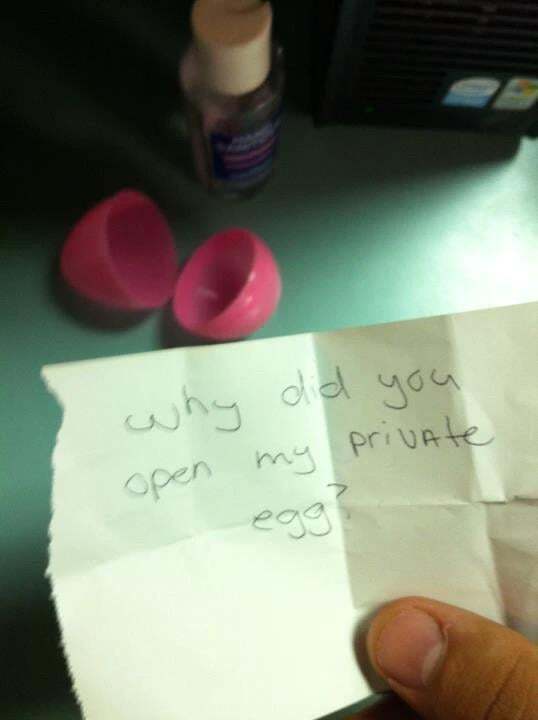 why did you
open my private
egg?